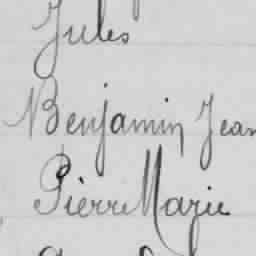 Jules
Benjamin Jean
Pierre Marie